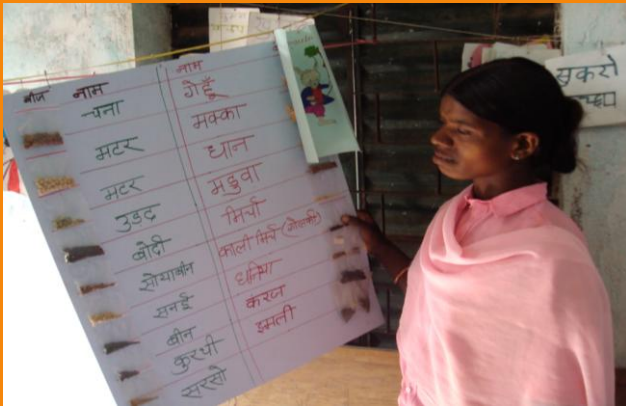 बीज नाम
चना
मटर
मटर
उड़द
बोदी
सोयाबीन
सनई
बीन
कुरथी
सरसो
नाम
गेहूँ
मक्का
धान
मडुवा
मिर्ची
काली मिर्च (गोलकी)
धनिया
करंज
इमली
सुकरो